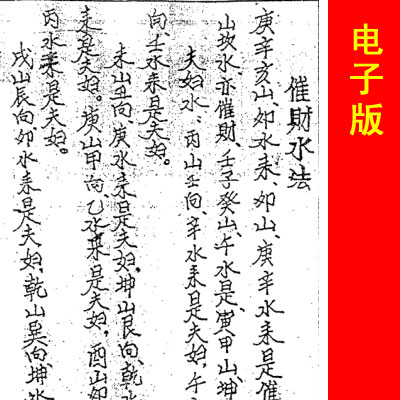 电子版
催財水法
庚辛亥山、卯水来、卯山、庚辛水来是催
山坎水、亦催財、壬子癸山、午水是、寅甲山、坤
夫妇水、丙山壬向、辛水来是夫妇、午
向壬水来是夫妇。
未山丑向、庚水来是夫妇、坤山艮向、乾水
来是夫妇。庚山甲向乙水来是夫妇、酉山卯
丙水来是夫妇。
戌山辰向卯水来是夫妇、乾山巽向、坤水